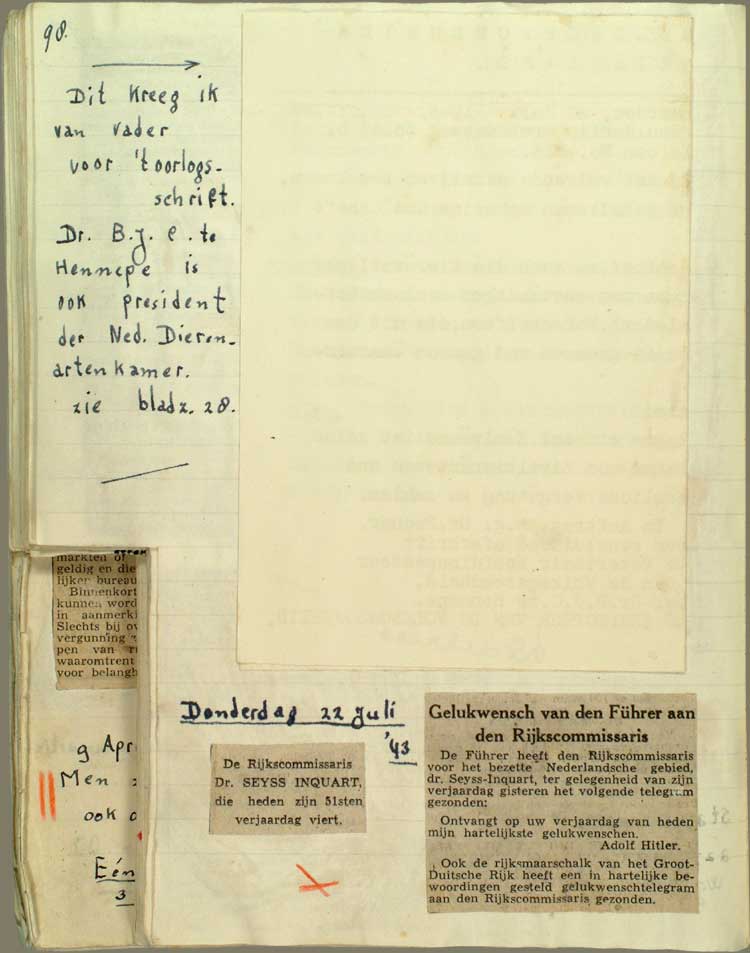 98.
Dit kreeg ik
van vader
voor 't oorlogs-
schrift.
Dr. B.J.C. te
Hennepe is
ook president
der Ned. Dieren-
artenkamer.
zie bladz. 28.
markten of
geldig en die
lijker bureau
Binnenkort
kunnen word
in aanmerki
Slechts bij ov
vergunning
pen van
waaromtrent
voor belangh
9 Apr
Men
ook
Eén
3
Donderdag 22 Juli
'43
De Rijkscommissaris
Dr. SEYSS INQUART,
die heden zijn 51sten
verjaardag viert.
Gelukwensch van den Führer aan
den Rijkscommissaris
De Führer heeft den Rijkscommissaris
voor het bezette Nederlandsche gebied,
dr. Seyss-Inquart, ter gelegenheid van zijn
verjaardag gisteren het volgende telegram
gezonden:
Ontvangt op uw verjaardag van heden
mijn hartelijkste gelukwenschen.
Adolf Hitler.
Ook de rijksmaarschalk van het Groot-
Duitsche Rijk heeft een in hartelijke be-
woordingen gesteld gelukwenschtelegram
aan den Rijkscommissaris gezonden.